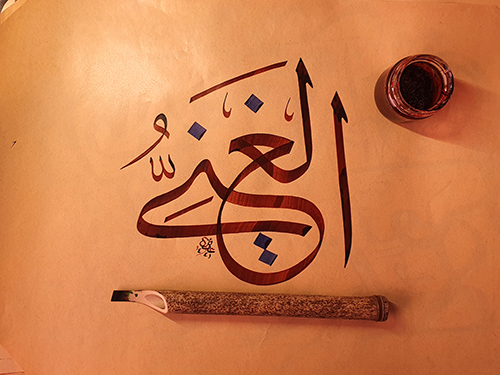 الغَنيُّ